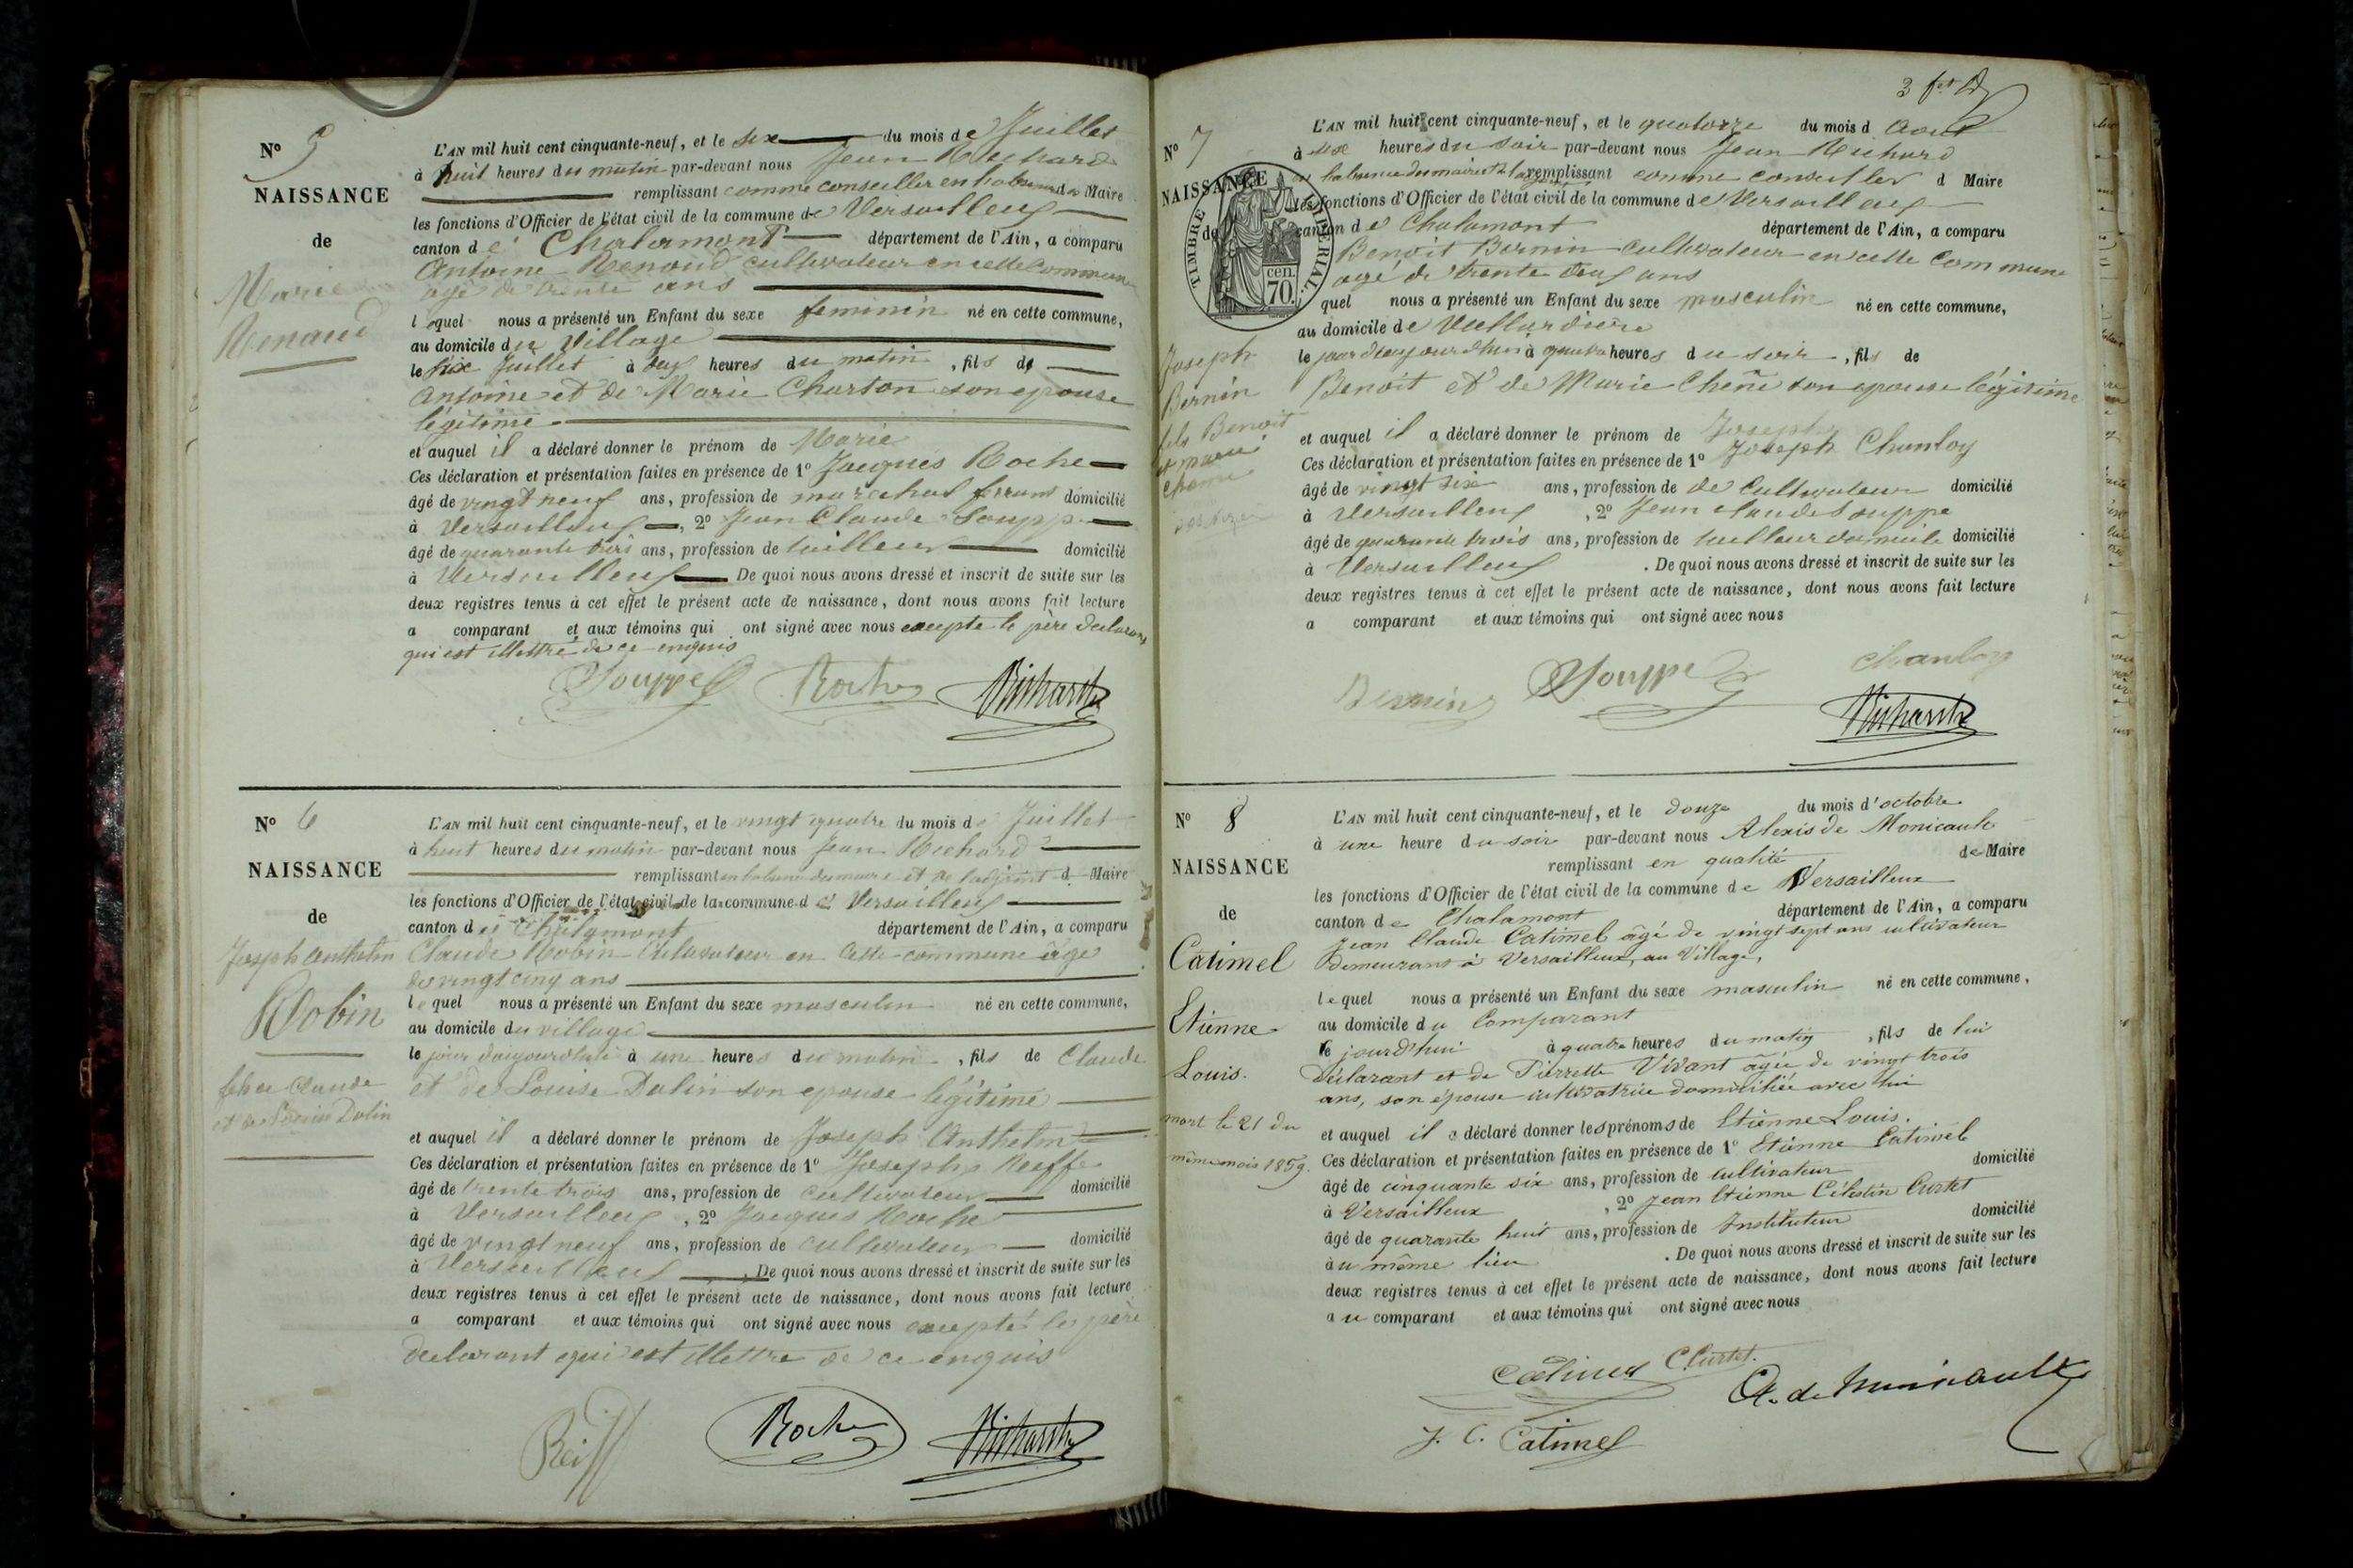 Nº 5
NAISSANCE
de
Marie
Renaud
L'AN mil huit cent cinquante-neuf, et le six du mois de Juillet
à huit heures du matin par-devant nous Jean Richard
remplissant comme conseiller en de Maire
les fonctions d'Officier de l'état civil de la commune de Versailleux
canton de Chalamont département de l'Ain, a comparu
Antoine Renoud cultivateur en cette commune
agé de trente ans
lequel nous a présenté un Enfant du sexe feminin né en cette commune,
au domicile du Village
le six Juillet à deux heures du matin, fils de
Antoine et de Marie Charton son epouse
légitime
et auquel il a déclaré donner le prénom de Marie
Ces déclaration et présentation faites en présence de 1º Jacques Roche
âgé de vingt neuf ans, profession de marechal ferrant domicilié
à Versailleux, 2º Jean Claude Souppe
âgé de quarante trois ans, profession de tailleur domicilié
à Versailleux De quoi nous avons dressé et inscrit de suite sur les
deux registres tenus à cet effet le présent acte de naissance, dont nous avons fait lecture
a comparant et aux témoins qui ont signé avec nous excepte le père declarant
qui est illettré de ce enquis
Souppe Roche Richard
Nº 6
NAISSANCE
de
Joseph Anthelm
Robin
fils de Claude
et de Louise Dolin
L'AN mil huit cent cinquante-neuf, et le vingt quatre du mois de Juillet
à huit heures du matin par-devant nous Jean Richard
remplissant en du maire et de l'adjoint d Maire
les fonctions d'Officier de l'état civil de la commune de Versailleux
canton de Chalamont département de l'Ain, a comparu
Claude Robin Cultivateur en cette commune âgé
de vingt cinq ans
lequel nous a présenté un Enfant du sexe masculin né en cette commune,
au domicile du village
le jour daujourdhui à une heures du matin, fils de Claude
et de Louise Dolin son epouse légitime
et auquel il a déclaré donner le prénom de Joseph Anthelm
Ces déclaration et présentation faites en présence de 1º Joseph Reiff
âgé de trente trois ans, profession de cultivateur domicilié
à Versailleux, 2º Jacques Roche
âgé de vingt neuf ans, profession de cultivateur domicilié
à Versailleux. De quoi nous avons dressé et inscrit de suite sur les
deux registres tenus à cet effet le présent acte de naissance, dont nous avons fait lecture
a comparant et aux témoins qui ont signé avec nous excepté le père
declarant qui est illettre de ce enquis
Reiff Roche Richard
3
Nº 7
NAISSANCE
de
TIMBRE IMPERIAL
cen.
70.
Joseph
Bernin
fils Benoit
et marie
L'AN mil huit cent cinquante-neuf, et le quatorze du mois d Aout
à six heures du soir par-devant nous Jean Richard
remplissant comme conseiller d Maire
les fonctions d'Officier de l'état civil de la commune de Versailleux
canton de Chalamont département de l'Ain, a comparu
Benoit Bernin cultivateur en cette Commune
agé de trente deux ans
quel nous a présenté un Enfant du sexe masculin né en cette commune,
au domicile de
le jour daujourdhui à quatre heures du soir, fils de
Benoit et de Marie Chêne son epouse légitime
et auquel il a déclaré donner le prénom de Joseph
Ces déclaration et présentation faites en présence de 1º Joseph Chanloy
âgé de vingt six ans, profession de de Cultivateur domicilié
à Versailleux, 2º Jean claude Souppe
âgé de quarante trois ans, profession de tailleur domicilié domicilié
à Versailleux. De quoi nous avons dressé et inscrit de suite sur les
deux registres tenus à cet effet le présent acte de naissance, dont nous avons fait lecture
a comparant et aux témoins qui ont signé avec nous
Bernin Souppe Chanloy
Richard
Nº 8
NAISSANCE
de
Catimel
Etienne
Louis.
mort le 21 du
même mois 1859.
L'AN mil huit cent cinquante-neuf, et le douze du mois d'octobre
à une heure du soir par-devant nous Alexis de Monicault
remplissant en qualité de Maire
les fonctions d'Officier de l'état civil de la commune de Versailleux
canton de Chalamont département de l'Ain, a comparu
Jean Claude Catimel âgé de vingt sept ans cultivateur
demeurant à Versailleux, au Village,
lequel nous a présenté un Enfant du sexe masculin né en cette commune,
au domicile du Comparant
le jourd'hui à quatre heures du matin, fils de lui
Déclarant et de Pierrette Vivant âgée de vingt trois
ans, son épouse cultivatrice domiciliée avec lui
et auquel il a déclaré donner les prénoms de Etienne Louis.
Ces déclaration et présentation faites en présence de 1º Etienne Catimel
âgé de cinquante six ans, profession de cultivateur domicilié
à Versailleux, 2º Jean Etienne Célestin Curtet
âgé de quarante huit ans, profession de Instituteur domicilié
au même lieu. De quoi nous avons dressé et inscrit de suite sur les
deux registres tenus à cet effet le présent acte de naissance, dont nous avons fait lecture
au comparant et aux témoins qui ont signé avec nous
Catimel C. Curtet.
A. de Monicault
J. C. Catimel